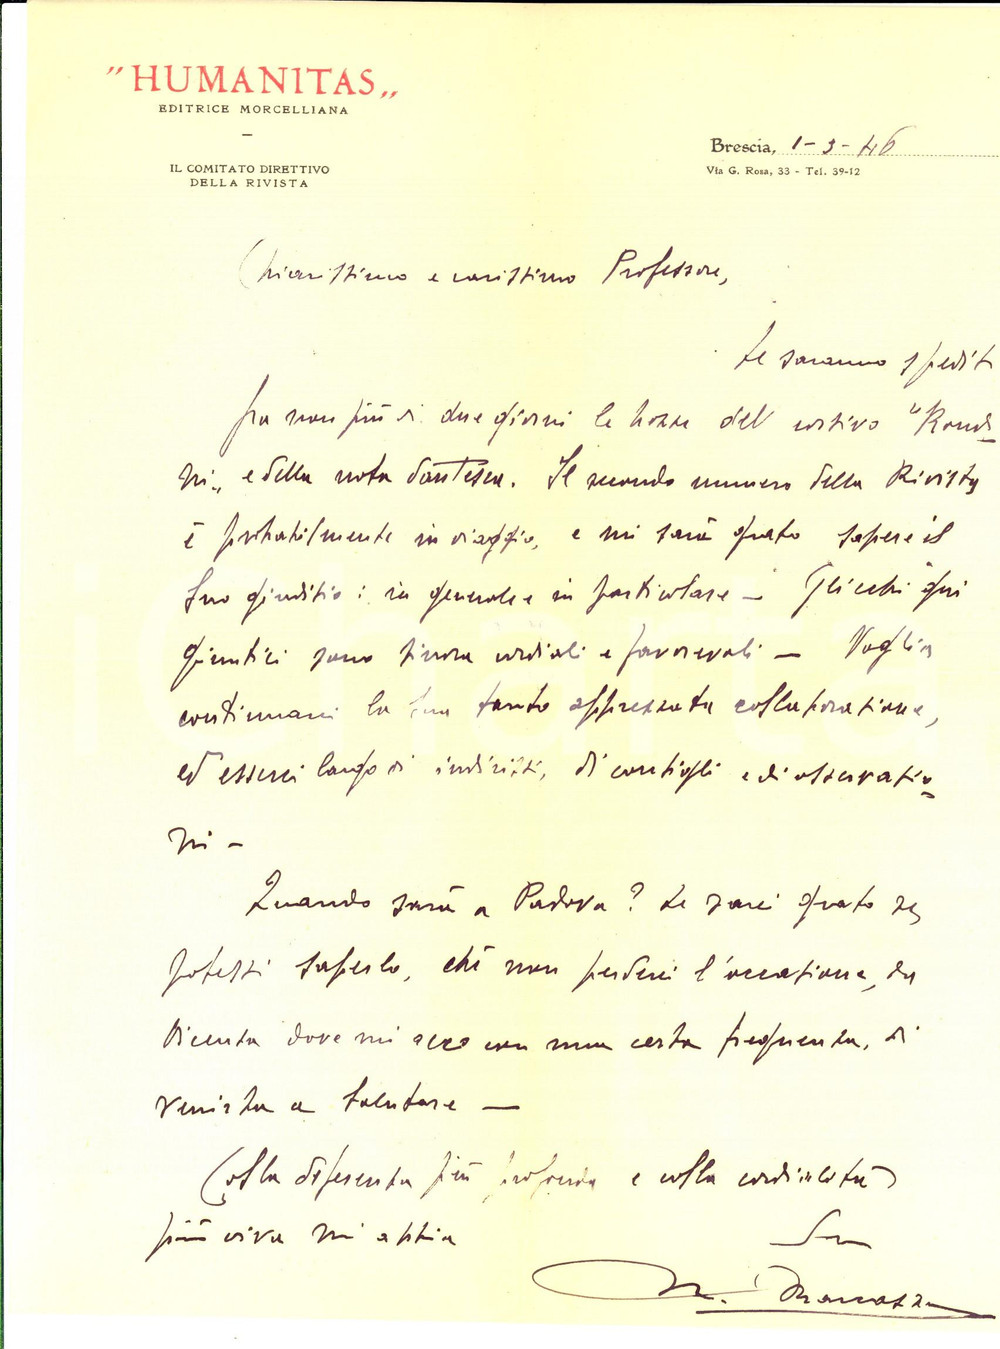 "HUMANITAS„
EDITRICE MORCELLIANA
IL COMITATO DIRETTIVO
DELLA RIVISTA
Brescia, 1-3-46
Via G. Rosa, 33 - Tel. 39-12
Chiarissimo e carissimo Professore,
Le saranno spedit
fra non più di due giorni le bozze del corsivo "Rondi-
ni„ e della nota dantesca. Il secondo numero della Rivista
è probabilmente in viaggio, e mi sarà grato sapere il
Suo giudizio: in generale e in particolare — Gli echi qui
giuntici sono sinora cordiali e favorevoli — Voglia
continuarci la Sua tanto apprezzata collaborazione,
ed esserci largo di indirizzi, di consigli e di osservazio-
ni —
Quando sarà a Padova? Le sarei grato se
potessi saperlo, chè non perderei l'occasione, da
Vicenza dove mi reco con una certa frequenza, di
venirla a salutare —
Colla deferenza più profonda e colla cordialità
più viva mi abbia
Suo
M. Marcazzan